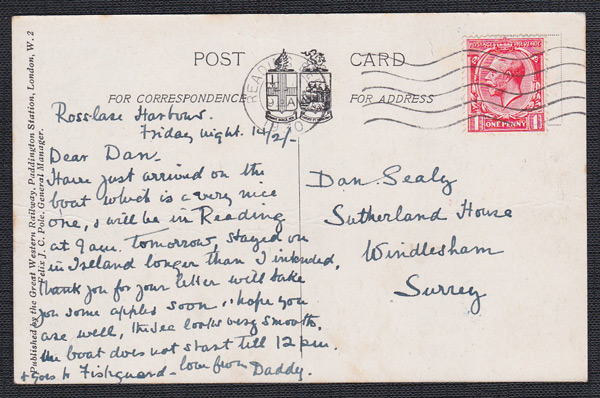 POST CARD
FOR CORRESPONDENCE
FOR ADDRESS
READING
1930
POSTAGE REVENUE
ONE PENNY
Published by the Great Western Railway, Paddington Station, London, W. 2
Felix J. C. Pole, General Manager.
Rosslare Harbour.
Friday night. 14/2/-
Dear Dan-
Have just arrived on the
boat which is a very nice
one, & will be in Reading
at 9 am. tomorrow, stayed on
in Ireland longer than I intended.
Thank you for your letter will take
you some apples soon, hope you
are well, the sea looks very smooth.
the boat does not start till 12 am.
& goes to Fishguard - love from Daddy.
Dan Sealy
Sutherland House
Windlesham
Surrey